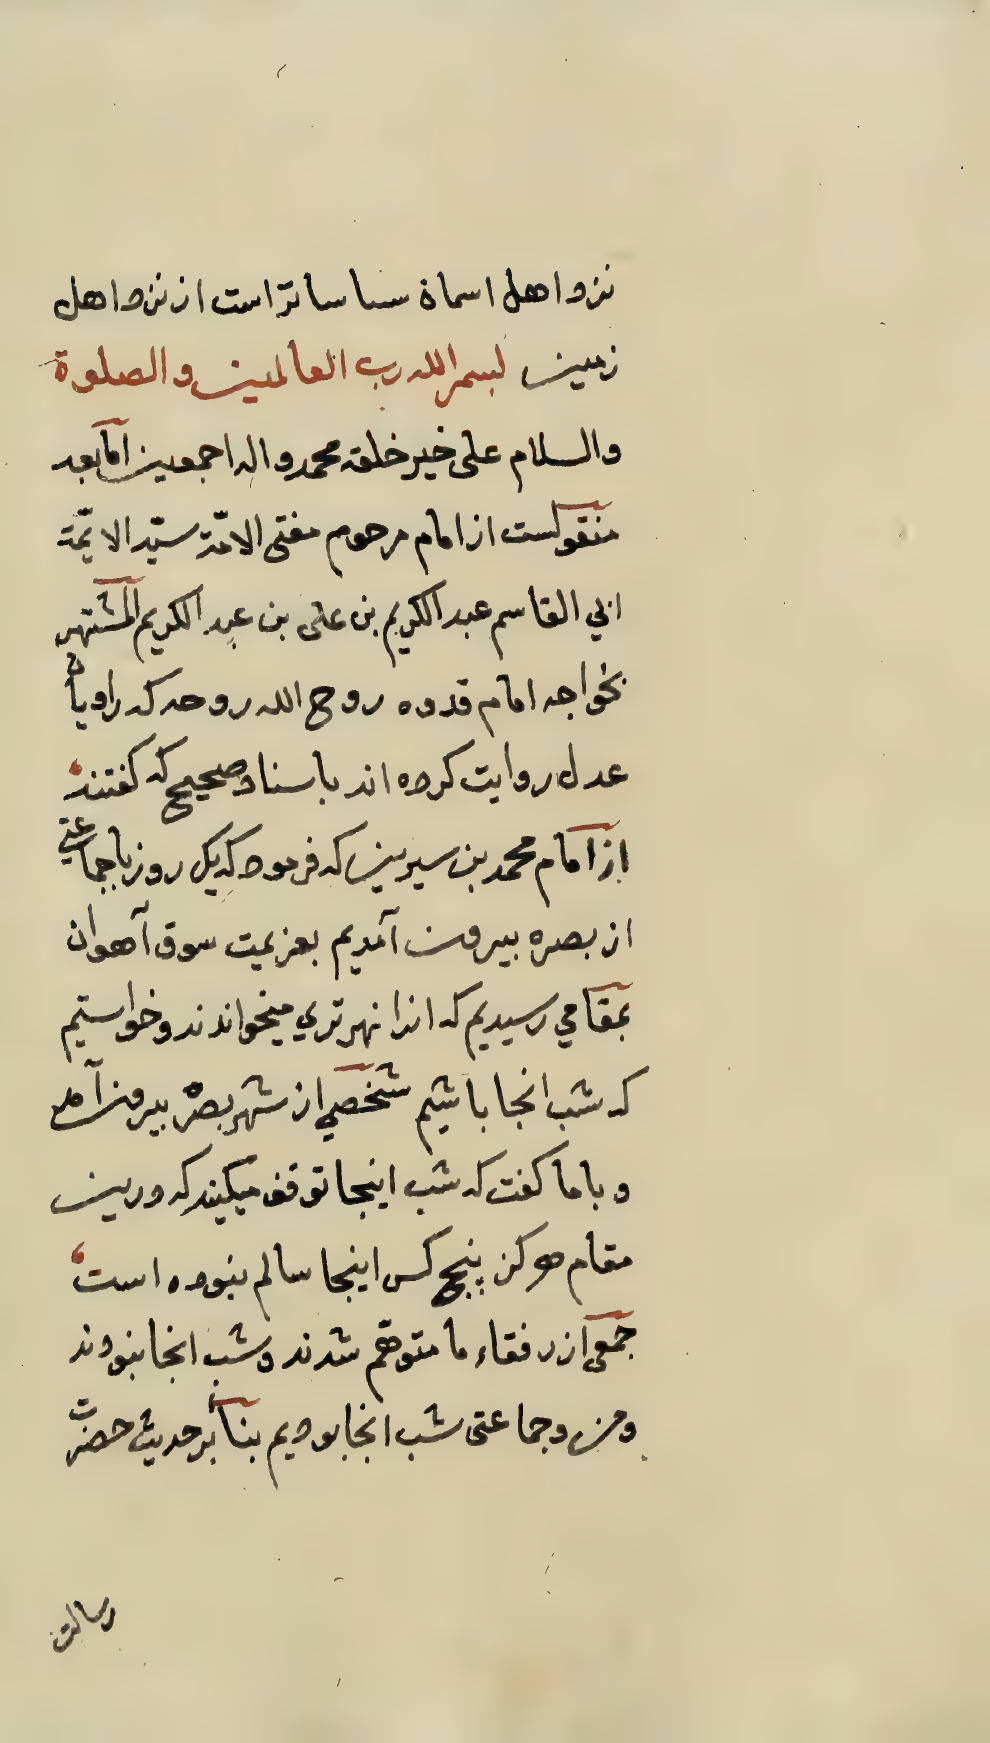 نزد اهل اسماة سا سا تر است از نزد اهل
زمین بسم الله رب العالمین و الصلوة
والسلام علی خیر خلقه محمد و اله اجمعین اما بعد
منقولست از امام مرحوم مفتی الامّة سیّد الایمّة
ابی القاسم عبد الکریم بن علی بن عبد الکریم المشتهر
بخواجه امام قدوه روح الله روحه که راویان
عدل روایت کرده اند باسناد صحیح که گفتند
از امام محمد بن سیرین که فرمود که یک روز با جماعتی
از بصره بیرون آمدیم بعزیمت سوق آهوان
بمقامی رسیدیم که انرا نهر تری میخواندند و خواستیم
که شب انجا باشیم شخصی از شهر بصره بیرون آمد
و باما گفت که شب اینجا توقف میکنید که درین
مقام هرگز پنج کس اینجا سالم نبوده است
جمعی از رفقاء ما متوهّم شدند و شب انجا نبودند
ومن و جماعتی شب انجا بودیم بنا بر حدیث حضرت
رسالت